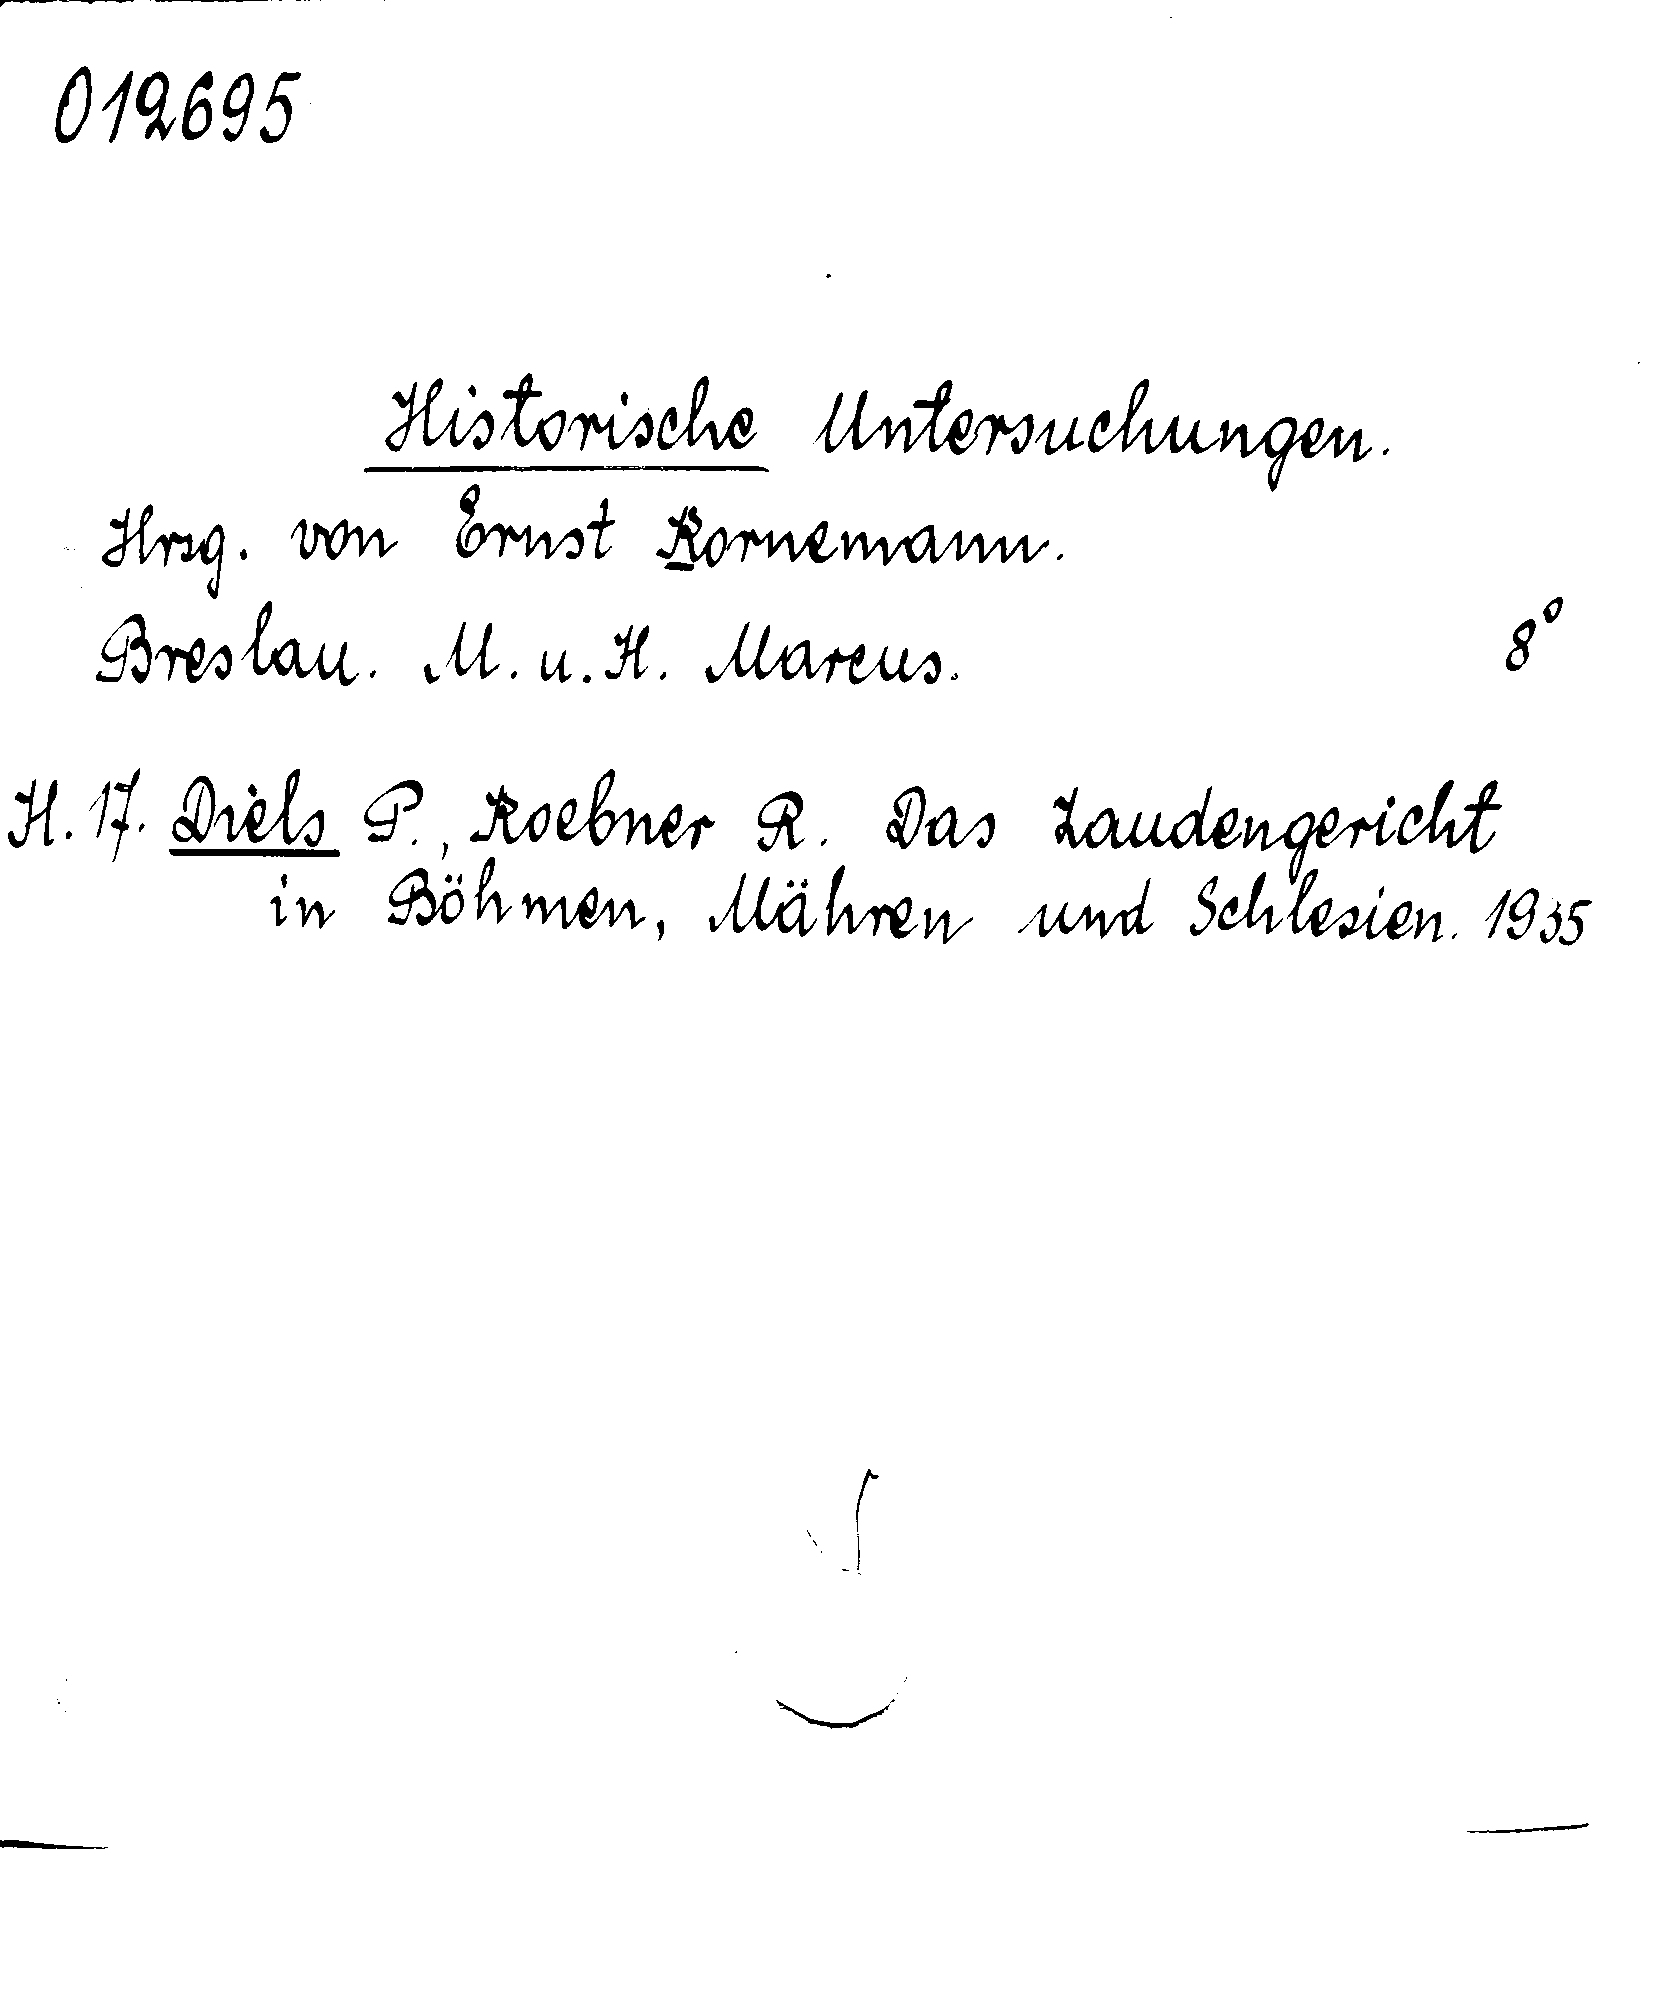 012695
Historische Untersuchungen.
Hrsg. von Ernst Kornemann.
Breslau. M. u. H. Marcus. 8°
H. 17. Diels P., Koebner R. Das Zaudengericht
in Böhmen, Mähren und Schlesien. 1935